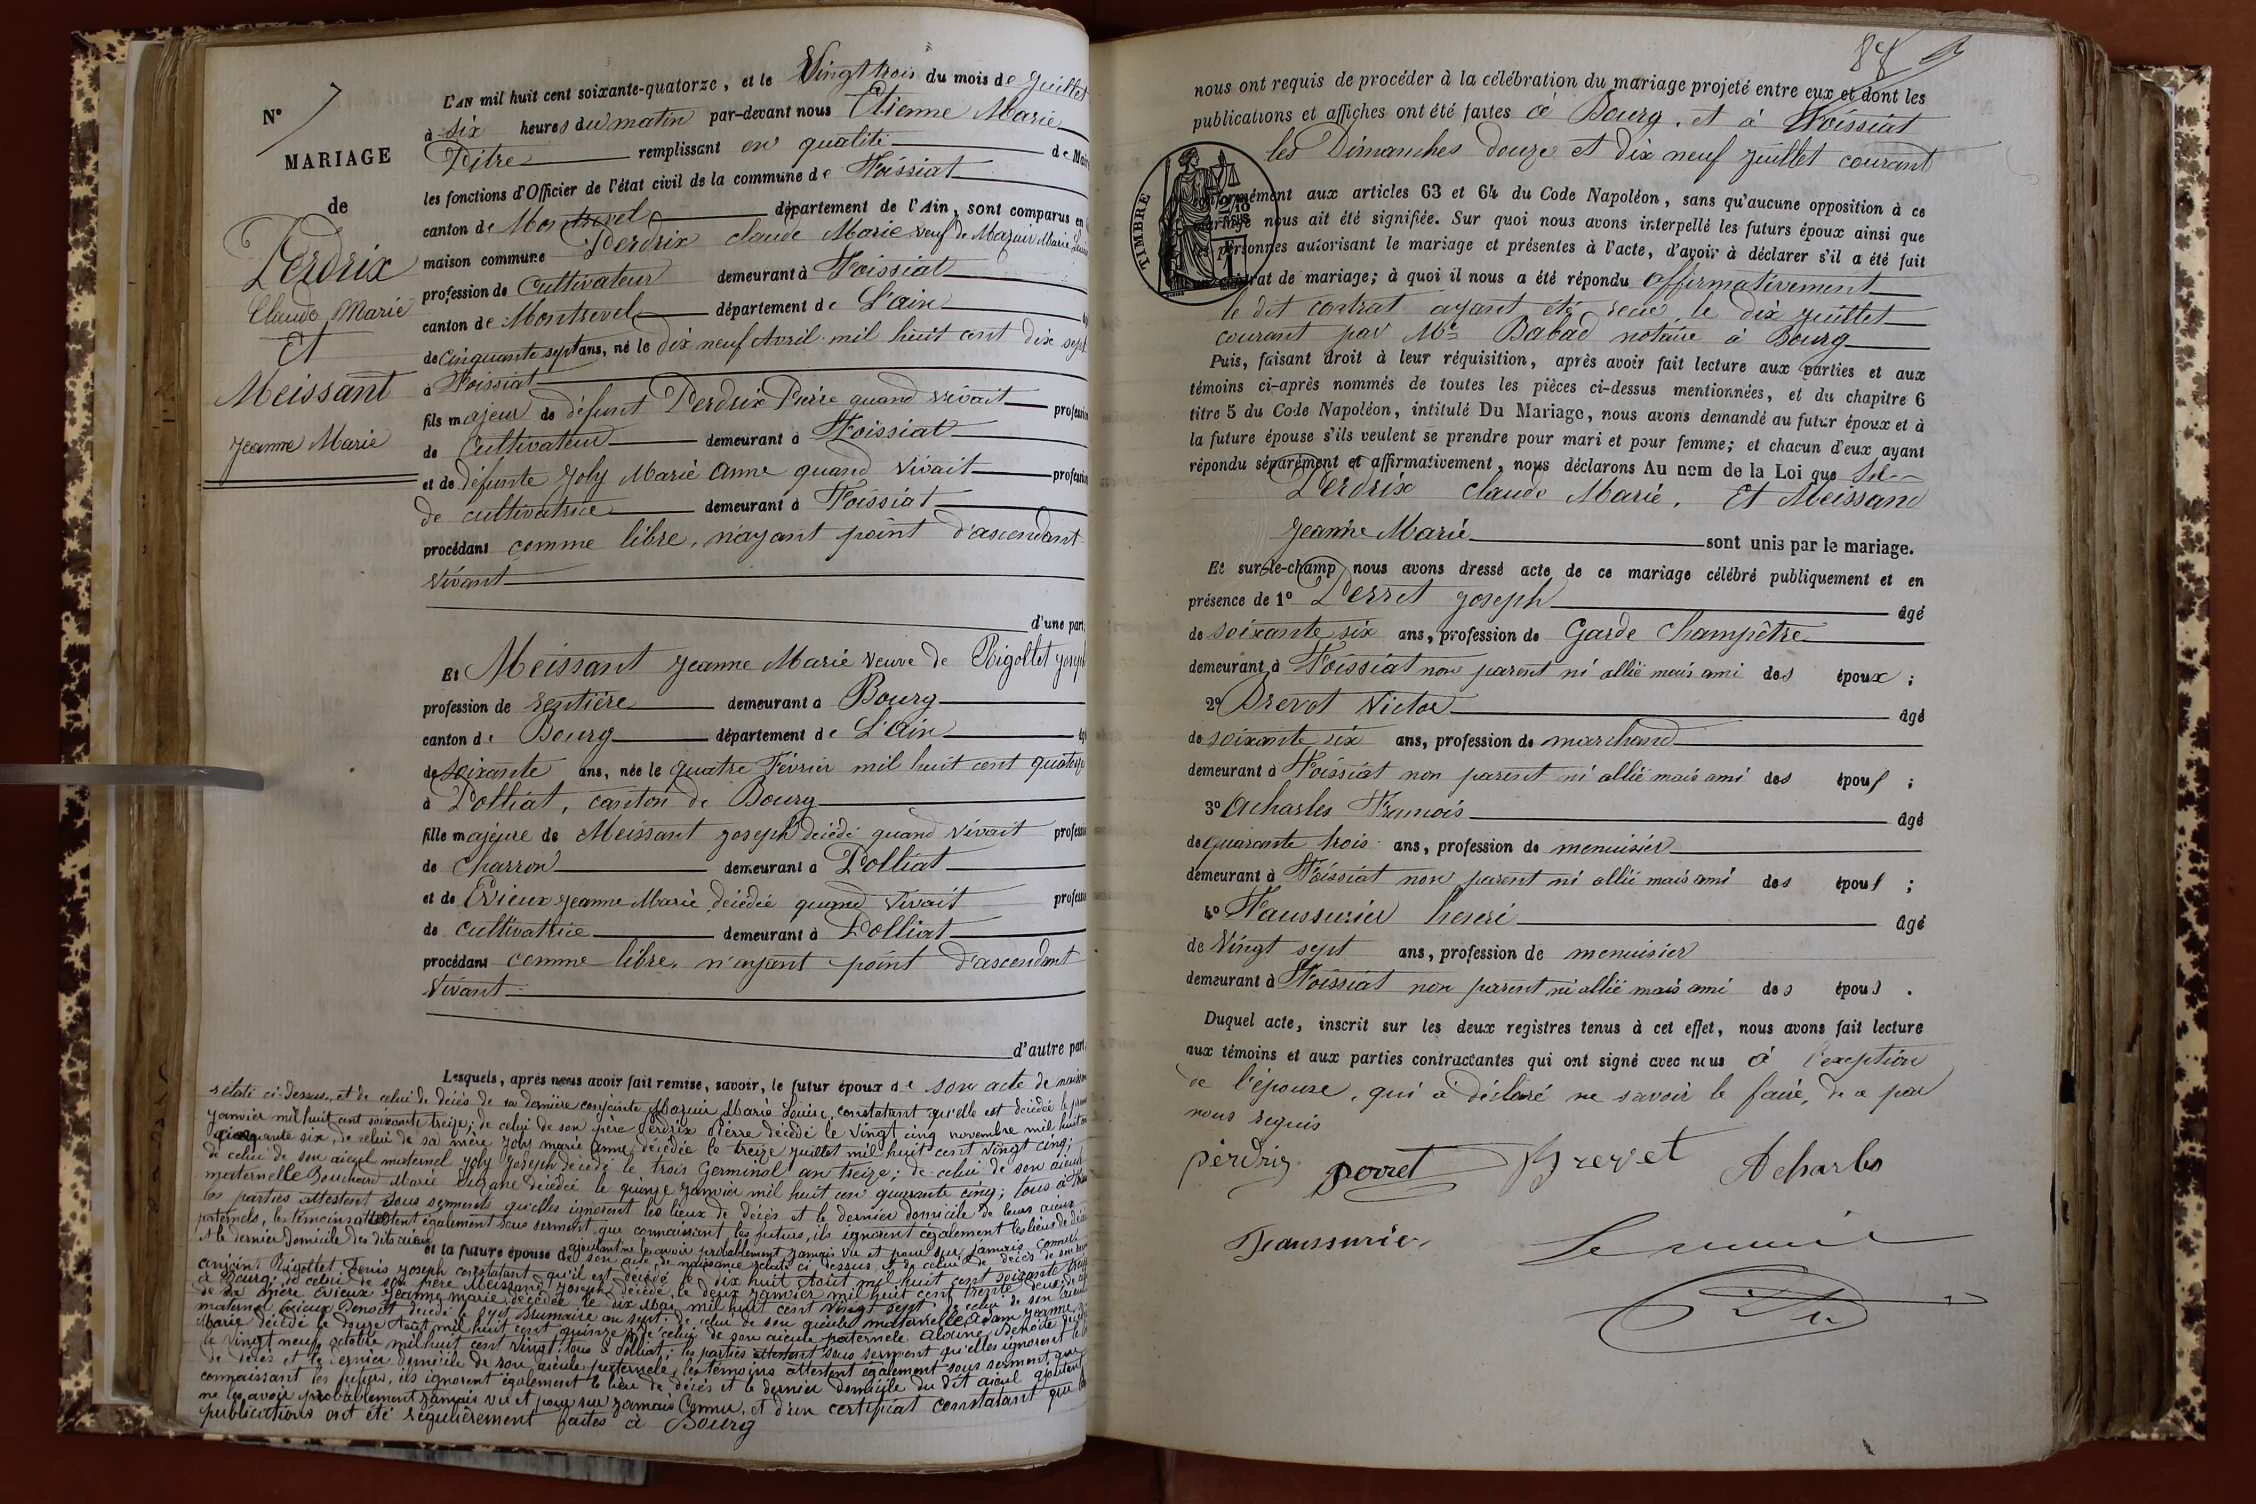 N° 7
MARIAGE
de
Perdrix
Claude Marie
Et
Meissant
Jeanne Marie
L'AN mil huit cent soixante-quatorze, et le Vingt trois du mois de Juillet
à six heures du matin par-devant nous Etienne Marie
Pitre remplissant en qualité de Maire
les fonctions d'Officier de l'état civil de la commune de Foissiat
canton de Montrevel département de l'Ain, sont comparus en
maison commune Perdrix Claude Marie veuf de Mazuir Marie Louise
profession de Cultivateur demeurant à Foissiat
canton de Montrevel département de L'ain
de Cinquante sept ans, né le dix neuf Avril mil huit cent dix sept
à Foissiat
fils majeur de défunt Perdrix Pierre quand vivait profession
de Cultivateur demeurant à Foissiat
et de défunte Joly Marie Anne quand vivait profession
de cultivatrice demeurant à Foissiat
procédant comme libre, n'ayant point d'ascendant
vivant
d'une part,
Et Meissant Jeanne Marie veuve de Rigollet Joseph
profession de rentière demeurant à Bourg
canton de Bourg département de L'Ain
de soixante ans, née le quatre Février mil huit cent quatorze
à Polliat, canton de Bourg
fille majeure de Meissant Joseph décédé quand vivait profession
de Charron demeurant à Polliat
et de Evieux Jeanne Marie décédée quand vivait profession
de cultivatrice demeurant à Polliat
procédant comme libre, n'ayant point d'ascendant
vivant
d'autre part
Lesquels, après nous avoir fait remise, savoir, le futur époux de son acte de naissance
relaté ci-dessus, et de celui de décès de sa dernière conjointe Mazuir Marie Louise, constatant qu'elle est décédée le
janvier mil huit cent soixante treize; de celui de son père Perdrix Pierre décédé le vingt cinq novembre mil huit cent
cinquante six, de celui de sa mère Joly Marie Anne, décédée le treize juillet mil huit cent vingt cinq;
de celui de son aieul maternel Joly Joseph décédé le trois Germinal an treize; de celui de son aieule
maternelle Bouchard Marie décédée le quinze janvier mil huit cent quarante cinq; tous à
les parties attestent sous serments qu'elles ignorent les lieux de décès et le dernier domicile de leurs aieux
paternels, les témoins attestent également sous serment que connaissant les futurs, ils ignorent également les lieux de décès
et le dernier domicile des dits aieux ajoutant ne les avoir probablement jamais vu et pour sur jamais connu
et la future épouse de son acte de naissance relaté ci dessus, et de celui de décès de son
conjoint Rigollet Denis Joseph constatant qu'il est décédé le dix huit Août mil huit cent soixante
à Bourg; de celui de son père Meissant Joseph décédé le deux janvier mil huit cent trente deux; de celui
de sa mère Evieux Jeanne Marie décédée le dix Mai mil huit cent vingt sept; de celui de son aieul
maternel Evieux Benoit décédé le sept Brumaire an sept; de celui de son aieule maternelle Adam Jeanne
Marie décédée le douze Août mil huit cent quinze; de celui de son aieule paternele Benoite
le vingt neuf octobre mil huit cent vingt; tous à Polliat; les parties attestent sous serment qu'elles ignorent le
de décès et le dernier domicile de son aieule paternele, les témoins attestent également sous serment que
connaissant les futurs, ils ignorent également le lieu de décès et le dernier domicile du dit aieul ajoutant
ne les avoir probablement jamais vu et pour sur jamais Connu, et d'un certificat constatant que les
publications ont été régulièrement faites à Bourg
88
nous ont requis de procéder à la célébration du mariage projeté entre eux et dont les
publications et affiches ont été faites à Bourg, et à Foissiat
les Dimanches douze et dix neuf juillet courant
TIMBRE
conformément aux articles 63 et 64 du Code Napoléon, sans qu'aucune opposition à ce
mariage nous ait été signifiée. Sur quoi nous avons interpellé les futurs époux ainsi que
les personnes autorisant le mariage et présentes à l'acte, d'avoir à déclarer s'il a été fait
contrat de mariage; à quoi il nous a été répondu Affirmativement
le dit contrat ayant été reçu le dix juillet
courant par Me Babad notaire à Bourg
Puis, faisant droit à leur réquisition, après avoir fait lecture aux parties et aux
témoins ci-après nommés de toutes les pièces ci-dessus mentionnées, et du chapitre 6
titre 5 du Code Napoléon, intitulé Du Mariage, nous avons demandé au futur époux et à
la future épouse s'ils veulent se prendre pour mari et pour femme; et chacun d'eux ayant
répondu séparément et affirmativement, nous déclarons Au nom de la Loi que
Perdrix Claude Marie, Et Meissant
Jeanne Marie sont unis par le mariage.
Et sur-le-champ nous avons dressé acte de ce mariage célébré publiquement et en
présence de 1° Perret Joseph âgé
de soixante six ans, profession de Garde Champêtre
demeurant à Foissiat non parent ni allié mais ami des époux;
2° Brevet Victor âgé
de soixante six ans, profession de marchand
demeurant à Foissiat non parent ni allié mais ami des époux;
3° Acharles François âgé
de quarante trois ans, profession de menuisier
demeurant à Foissiat non parent ni allié mais ami des époux;
4° Faussurier henri âgé
de Vingt sept ans, profession de menuisier
demeurant à Foissiat non parent ni allié mais ami des époux.
Duquel acte, inscrit sur les deux registres tenus à cet effet, nous avons fait lecture
aux témoins et aux parties contractantes qui ont signé avec nous à l'exception
de l'épouse, qui a déclaré ne savoir le faire, de a par
nous requis
perdrix perret Brevet Acharles
Faussurier Le maire
Pitre